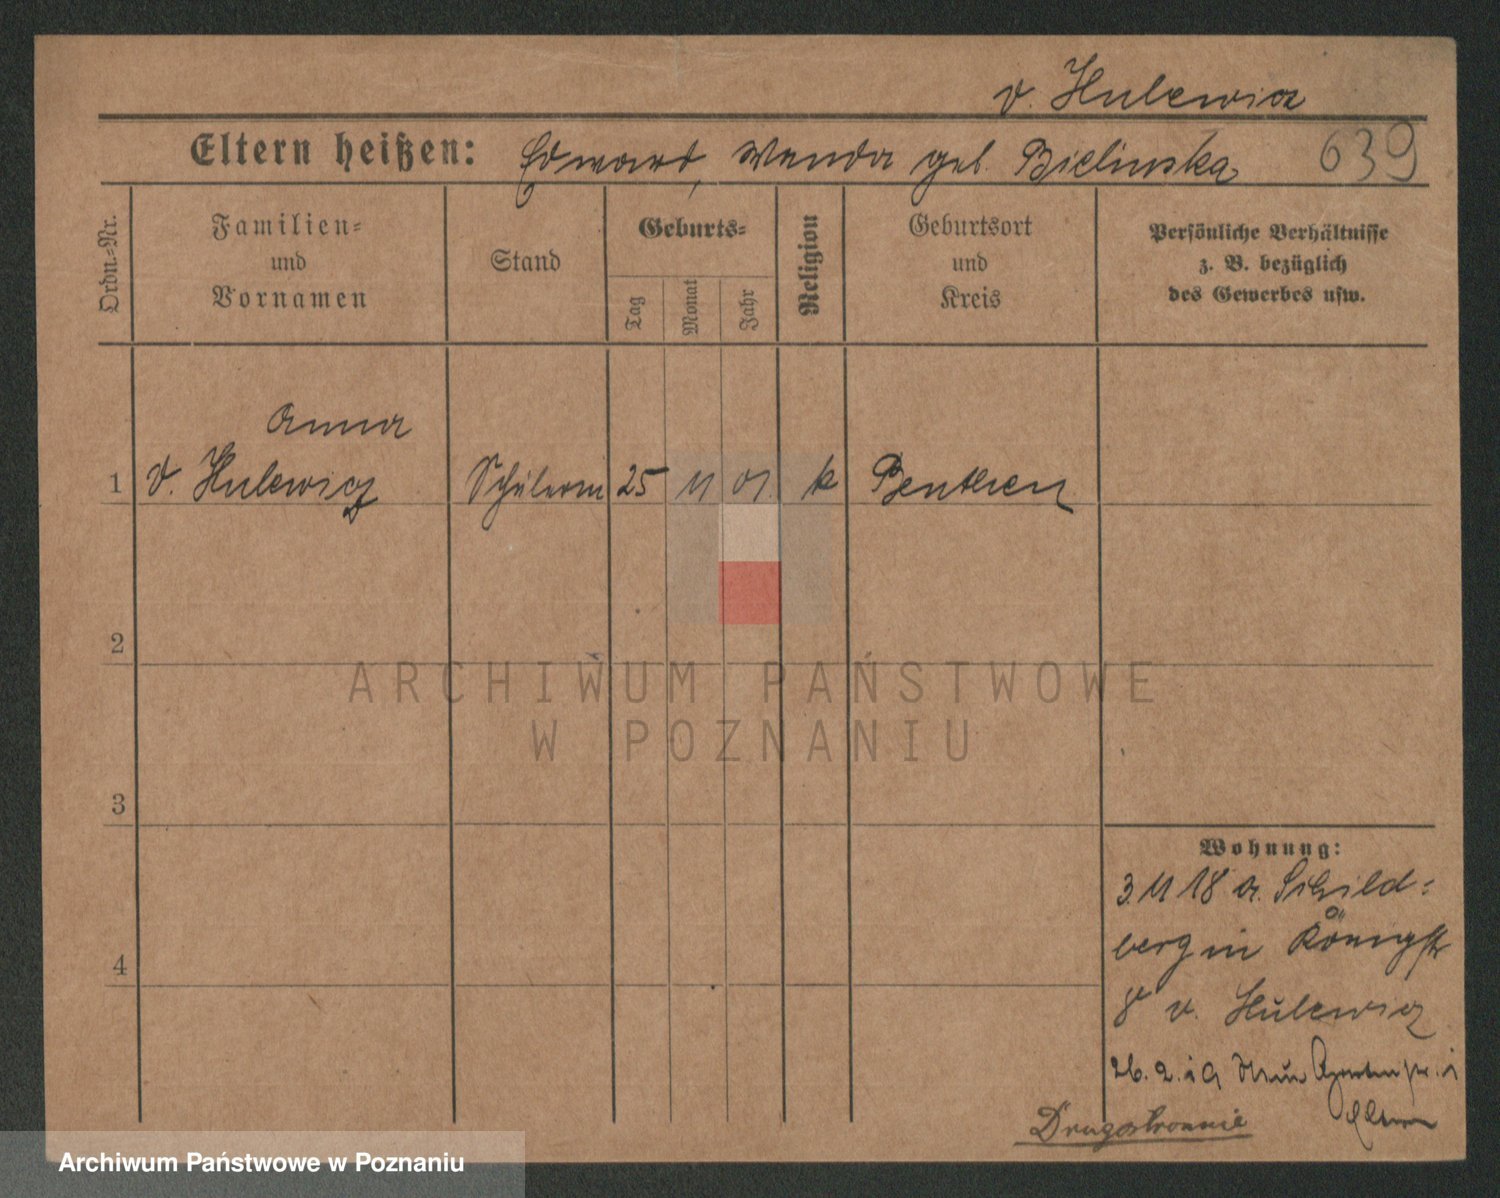 v. Hulewicz
Eltern heißen: Edward, Wanda geb. Bielinska
639
Ordn.-Nr.
Familien-
und
Vornamen
Stand
Geburts-
Tag
Monat
Jahr
Religion
Geburtsort
und
Kreis
Persönliche Verhältnisse
z. B. bezüglich
des Gewerbes usw.
Anna
1 v. Hulewicz Schülerin 25 11 01. k Beuthen
2
3
4
Wohnung:
3. 11 18 a. Schild-
berg in Königstr
8 v. Hulewicz
26. 2. 19 Neue Gartenstr. 1
Eltern
Drugostronnie
ARCHIWUM PAŃSTWOWE
W POZNANIU
Archiwum Państwowe w Poznaniu